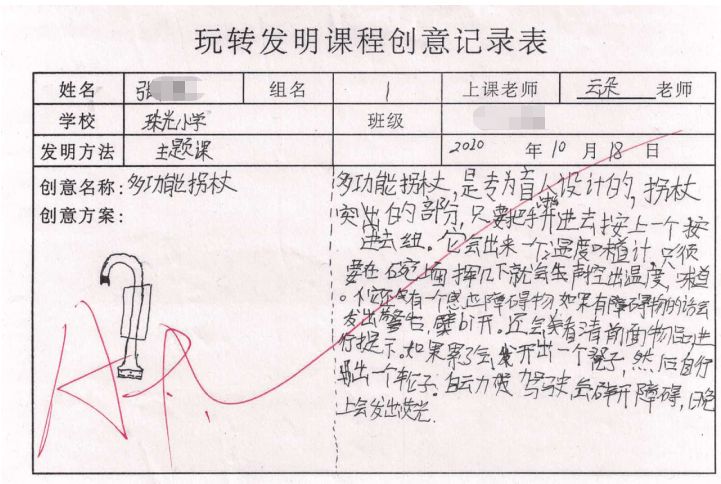 玩转发明课程创意记录表
姓名 張 组名 1 上课老师 云朵 老师
学校 珠光小学 班级
发明方法 主题课 2020 年 10 月 18 日
创意名称:多功能拐杖
创意方案:
多功能拐杖,是专为盲人设计的,拐杖
突出的部分,只要把手升进去按上一个按
组。它会出来一个温度味道计,只须
要在碗上面挥几下就会生声控出温度,味道
。它还有一个感应障碍物,如果有障碍物的话会
发出警告,要bi开。还会看清前面物品,进
行提示。如果累了会发开出一个凳子,然后自行
出一个轮子。自动驾驶,会碎开障碍,晚
上会发出荧光。